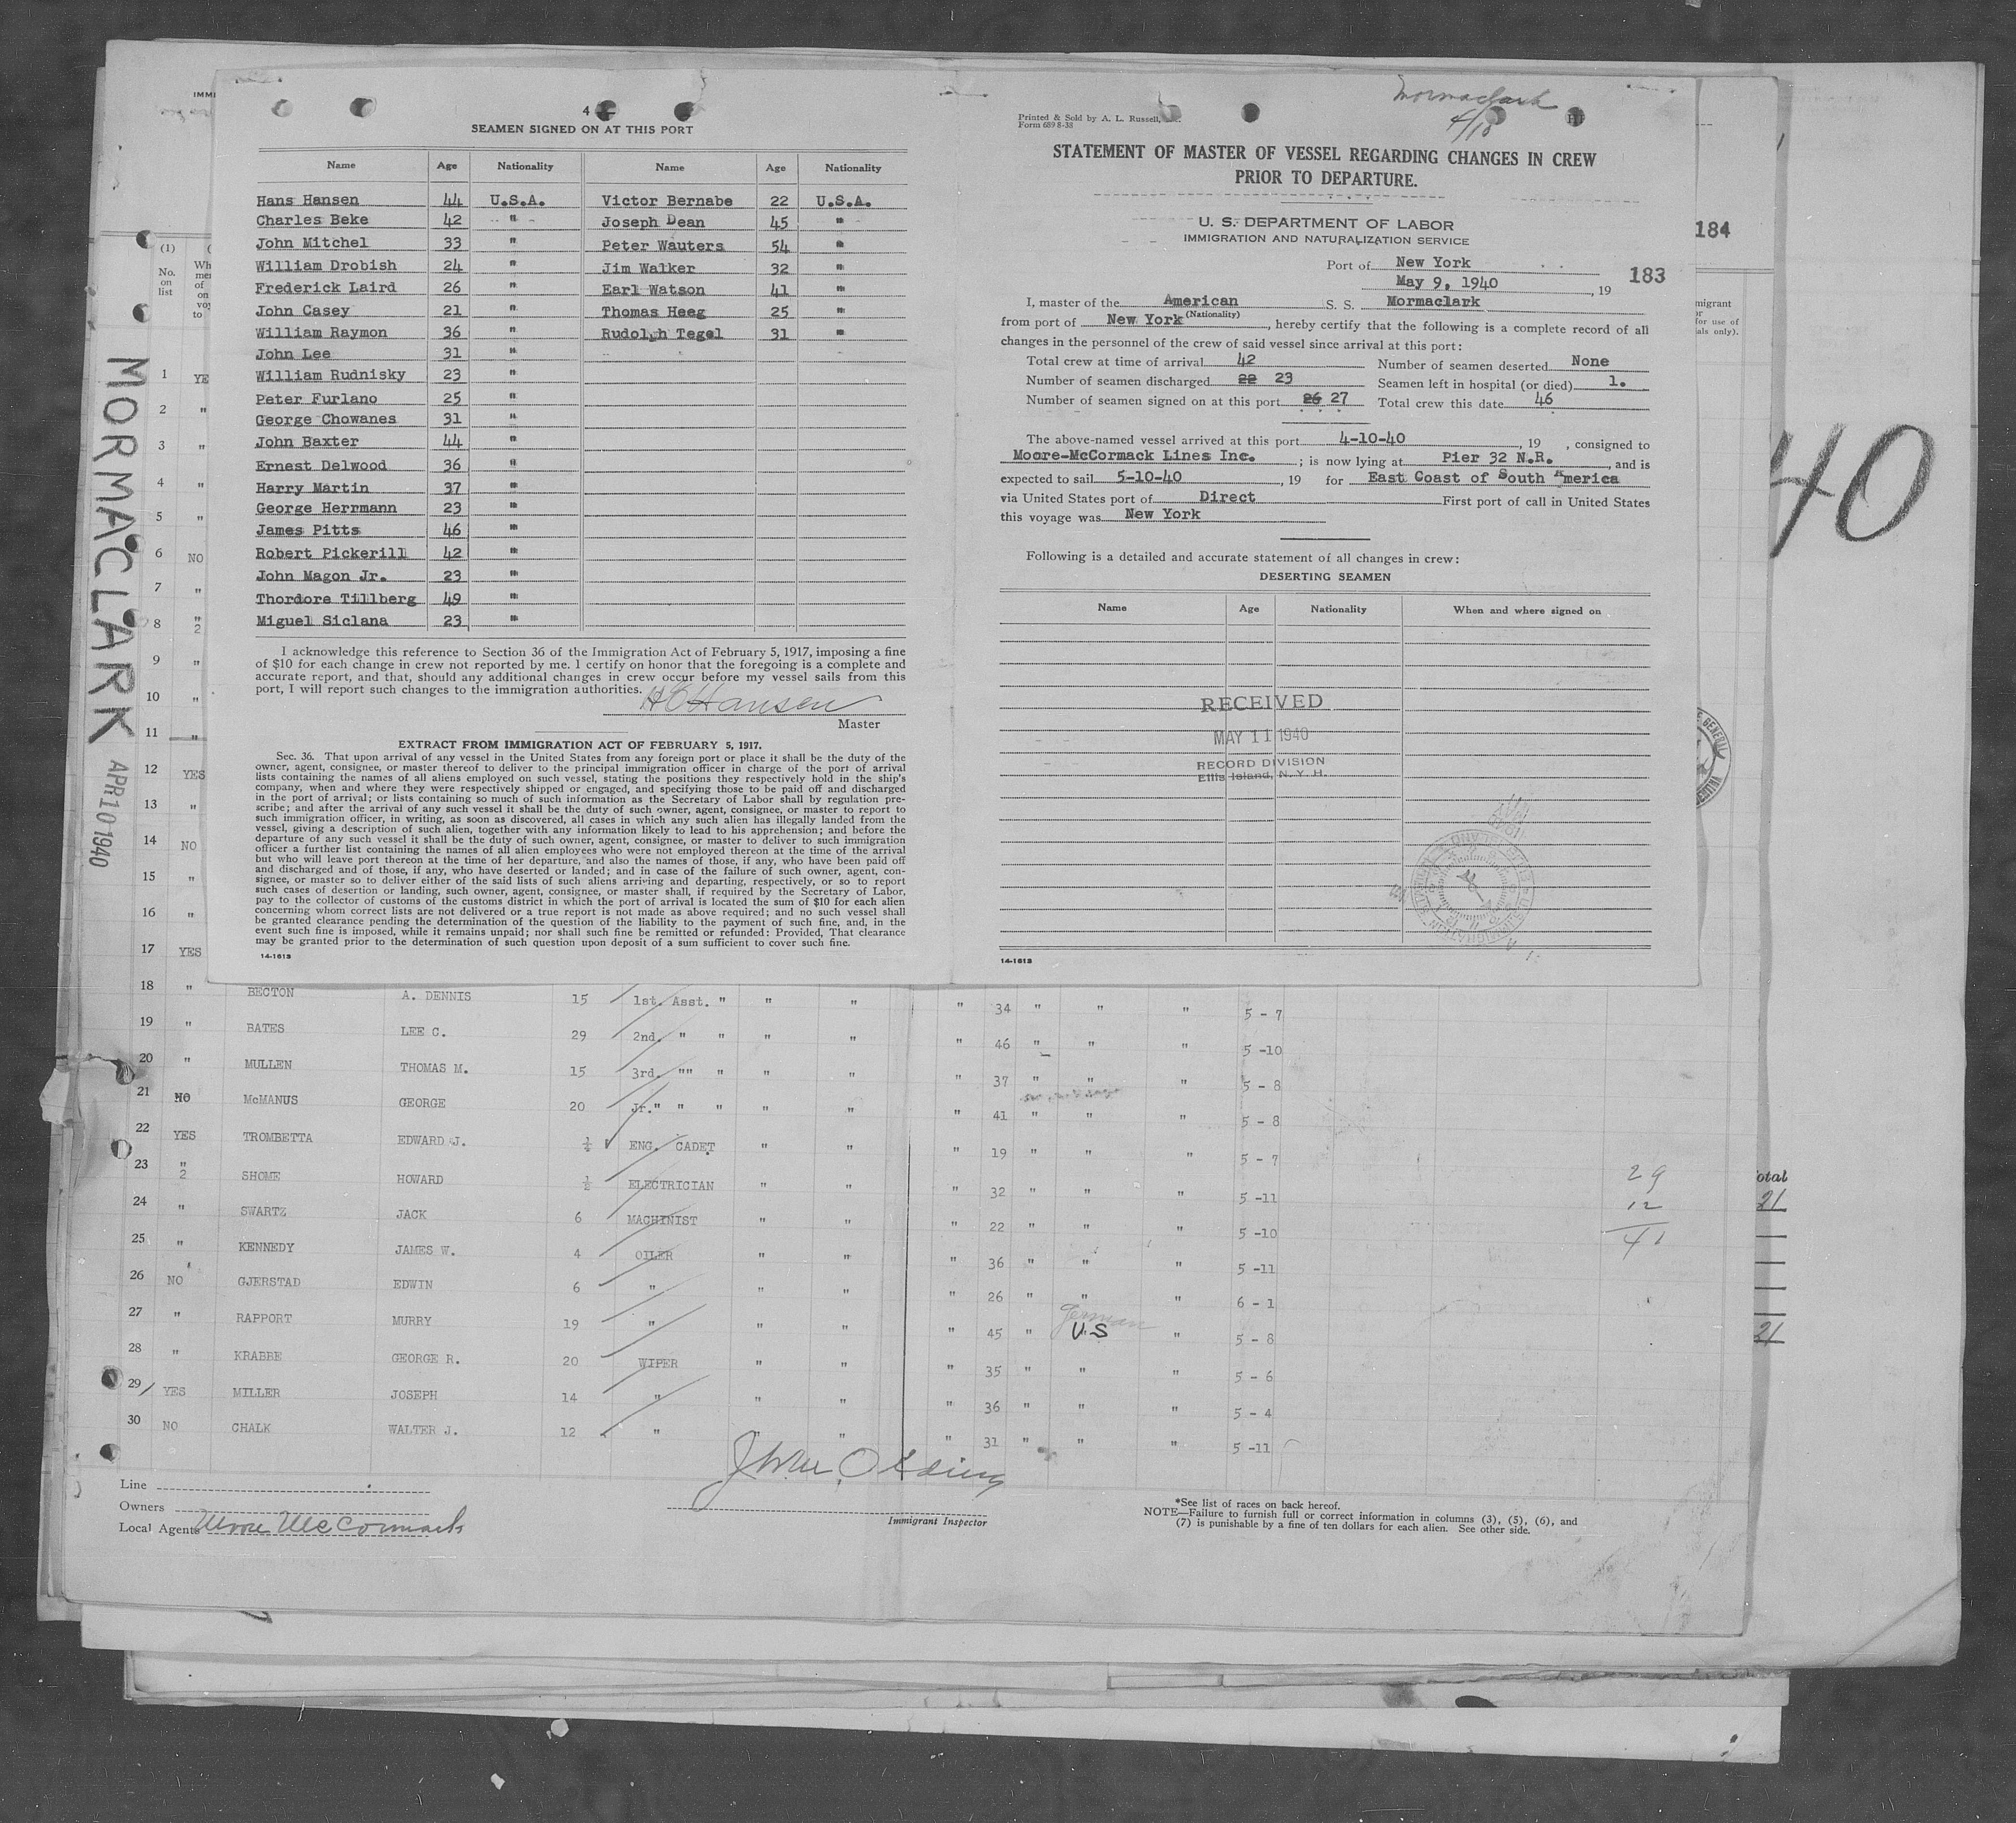 4
SEAMEN SIGNED ON AT THIS PORT
Name Age Nationality Name Age Nationality
Hans Hansen 44 U.S.A. Victor Bernabe 22 U.S.A.
Charles Beke 42 " - Joseph Dean 45 "
John Mitchel 33 " Peter Wauters 54 "
William Drobish 24 " Jim Walker 32 "
Frederick Laird 26 " Earl Watson 41 "
John Casey 21 " Thomas Heeg 25 "
William Raymon 36 " Rudolgh Tegel 31 "
John Lee 31 "
William Rudnisky 23 "
Peter Furlano 25 "
George Chowanes 31 "
John Baxter 44 "
Ernest Delwood 36 "
Harry Martin 37 "
George Herrmann 23 "
James Pitts 46 "
Robert Pickerill 42 "
John Magon Jr. 23 "
Thordore Tillberg 49 "
Miguel Siclana 23 "
I acknowledge this reference to Section 36 of the Immigration Act of February 5, 1917, imposing a fine
of $10 for each change in crew not reported by me. I certify on honor that the foregoing is a complete and
accurate report, and that, should any additional changes in crew occur before my vessel sails from this
port, I will report such changes to the immigration authorities.
H E Hansen
Master
EXTRACT FROM IMMIGRATION ACT OF FEBRUARY 5, 1917.
Sec. 36. That upon arrival of any vessel in the United States from any foreign port or place it shall be the duty of the
owner, agent, consignee, or master thereof to deliver to the principal immigration officer in charge of the port of arrival
lists containing the names of all aliens employed on such vessel, stating the positions they respectively hold in the ship's
company, when and where they were respectively shipped or engaged, and specifying those to be paid off and discharged
in the port of arrival; or lists containing so much of such information as the Secretary of Labor shall by regulation pre-
scribe; and after the arrival of any such vessel it shall be the duty of such owner, agent, consignee, or master to report to
such immigration officer, in writing, as soon as discovered, all cases in which any such alien has illegally landed from the
vessel, giving a description of such alien, together with any information likely to lead to his apprehension; and before the
departure of any such vessel it shall be the duty of such owner, agent, consignee, or master to deliver to such immigration
officer a further list containing the names of all alien employees who were not employed thereon at the time of the arrival
but who will leave port thereon at the time of her departure, and also the names of those, if any, who have been paid off
and discharged and of those, if any, who have deserted or landed; and in case of the failure of such owner, agent, con-
signee, or master so to deliver either of the said lists of such aliens arriving and departing, respectively, or so to report
such cases of desertion or landing, such owner, agent, consignee, or master shall, if required by the Secretary of Labor,
pay to the collector of customs of the customs district in which the port of arrival is located the sum of $10 for each alien
concerning whom correct lists are not delivered or a true report is not made as above required; and no such vessel shall
be granted clearance pending the determination of the question of the liability to the payment of such fine, and, in the
event such fine is imposed, while it remains unpaid; nor shall such fine be remitted or refunded: Provided, That clearance
may be granted prior to the determination of such question upon deposit of a sum sufficient to cover such fine.
14-1613
Mormaclark
4/10
Printed & Sold by A. L. Russell,
Form 689 8-38
STATEMENT OF MASTER OF VESSEL REGARDING CHANGES IN CREW
PRIOR TO DEPARTURE.
U. S. DEPARTMENT OF LABOR
IMMIGRATION AND NATURALIZATION SERVICE
Port of New York
May 9, 1940, 19
183
I, master of the American S. S. Mormaclark
(Nationality)
from port of New York, hereby certify that the following is a complete record of all
changes in the personnel of the crew of said vessel since arrival at this port:
Total crew at time of arrival 42 Number of seamen deserted None
Number of seamen discharged 22 23 Seamen left in hospital (or died) 1.
Number of seamen signed on at this port 26 27 Total crew this date 46
The above-named vessel arrived at this port 4-10-40, 19 , consigned to
Moore-McCormack Lines Inc. ; is now lying at Pier 32 N.R., and is
expected to sail 5-10-40, 19 for East Coast of South America
via United States port of Direct First port of call in United States
this voyage was New York
Following is a detailed and accurate statement of all changes in crew:
DESERTING SEAMEN
Name Age Nationality When and where signed on
RECEIVED
MAY 11 1940
RECORD DIVISION
Ellis Island, N. Y. H.
14-1613
184
40
MORMACLARK APR 10 1940
IMMI
(1)
No.
on
list
1 YE
2 "
3 "
4 "
5 "
6 NO
7 "
8 " 2
9 "
10 "
11 "
12 YES
13 "
14 NO
15 "
16 "
17 YES
18 " BECTON A. DENNIS 15 1st. Asst. " " " " 34 " " " 5 - 7
19 " BATES LEE C. 29 2nd. " " " " " 46 " " " 5 -10
20 " MULLEN THOMAS M. 15 3rd. "" " " " " 37 " " " 5 - 8
21 NO McMANUS GEORGE 20 Jr." " " " " " 41 " " " 5 - 8
22 YES TROMBETTA EDWARD J. ½ ENG. CADET " " " 19 " " " 5 - 7
23 " 2 SHOME HOWARD ½ ELECTRICIAN " " " 32 " " " 5 -11
24 " SWARTZ JACK 6 MACHINIST " " " 22 " " " 5 -10
25 " KENNEDY JAMES W. 4 OILER " " " 36 " " " 5 -11
26 NO GJERSTAD EDWIN 6 " " " " 26 " " " 6 - 1
27 " RAPPORT MURRY 19 " " " " 45 " German U.S " 5 - 8
28 " KRABBE GEORGE R. 20 WIPER " " " 35 " " " 5 - 6
29 YES MILLER JOSEPH 14 " " " " 36 " " " 5 - 4
30 NO CHALK WALTER J. 12 " " " 31 " " " 5 -11
29
12
41
otal
21
21
Line
Owners
Local Agents Moore McCormack
Immigrant Inspector
*See list of races on back hereof.
NOTE—Failure to furnish full or correct information in columns (3), (5), (6), and
(7) is punishable by a fine of ten dollars for each alien. See other side.